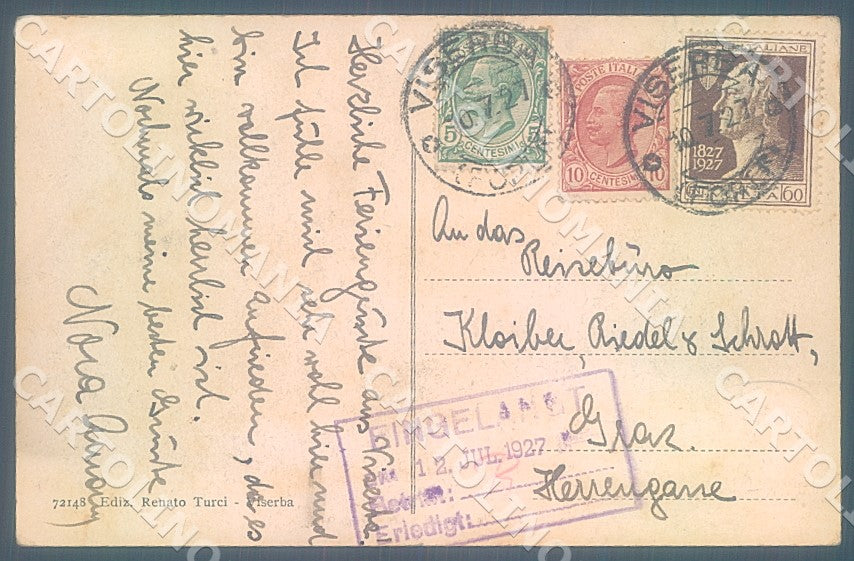 Herzliche Feriengrüße aus Viserba.
Ich fühle mich sehr wohl hier und
bin vollkommen zufrieden, da es
hier wirklich herrlich ist.
Nochmals meine besten Grüße
Nora
VISERBA
6.7.27
(FORLI)
5 5
CENTESIMI
POSTE ITALIANE
10 10
CENTESIMI
VISERBA
10.7.27
(FORLI)
ITALIANE
1827
1927
60
An das
Reisebüro
Kloiber, Riedel & Schrott,
Graz.
Herrengasse
EINGELANGT
12. JUL. 1927
Erledigt:
72148 Ediz. Renato Turci - Viserba
CARTOLINOMANIA